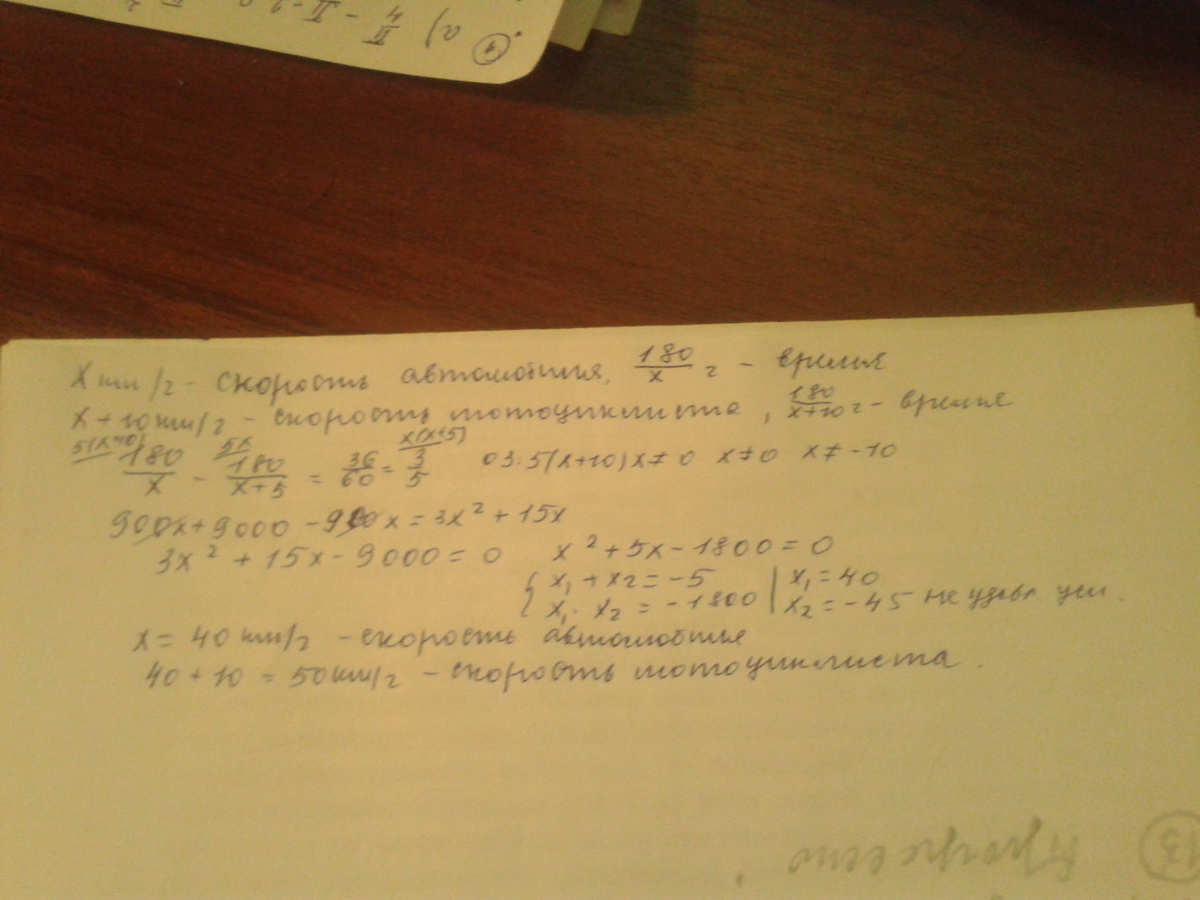 x км/г - скорость автомобиля, 180/x г - время
x+10 км/г - скорость мотоциклиста, 180/(x+10) г - время
5(x+10) 5x x(x+5)
180/x - 180/(x+5) = 36/60 = 3/5 ОЗ: 5(x+10)x≠0 x≠0 x≠-10
900x+9000-900x=3x²+15x
3x²+15x-9000=0 x²+5x-1800=0
{ x₁+x₂=-5 | x₁=40
x₁·x₂=-1800 | x₂=-45 не удовл усл.
x=40 км/г - скорость автомобиля
40+10=50 км/г - скорость мотоциклиста.
13